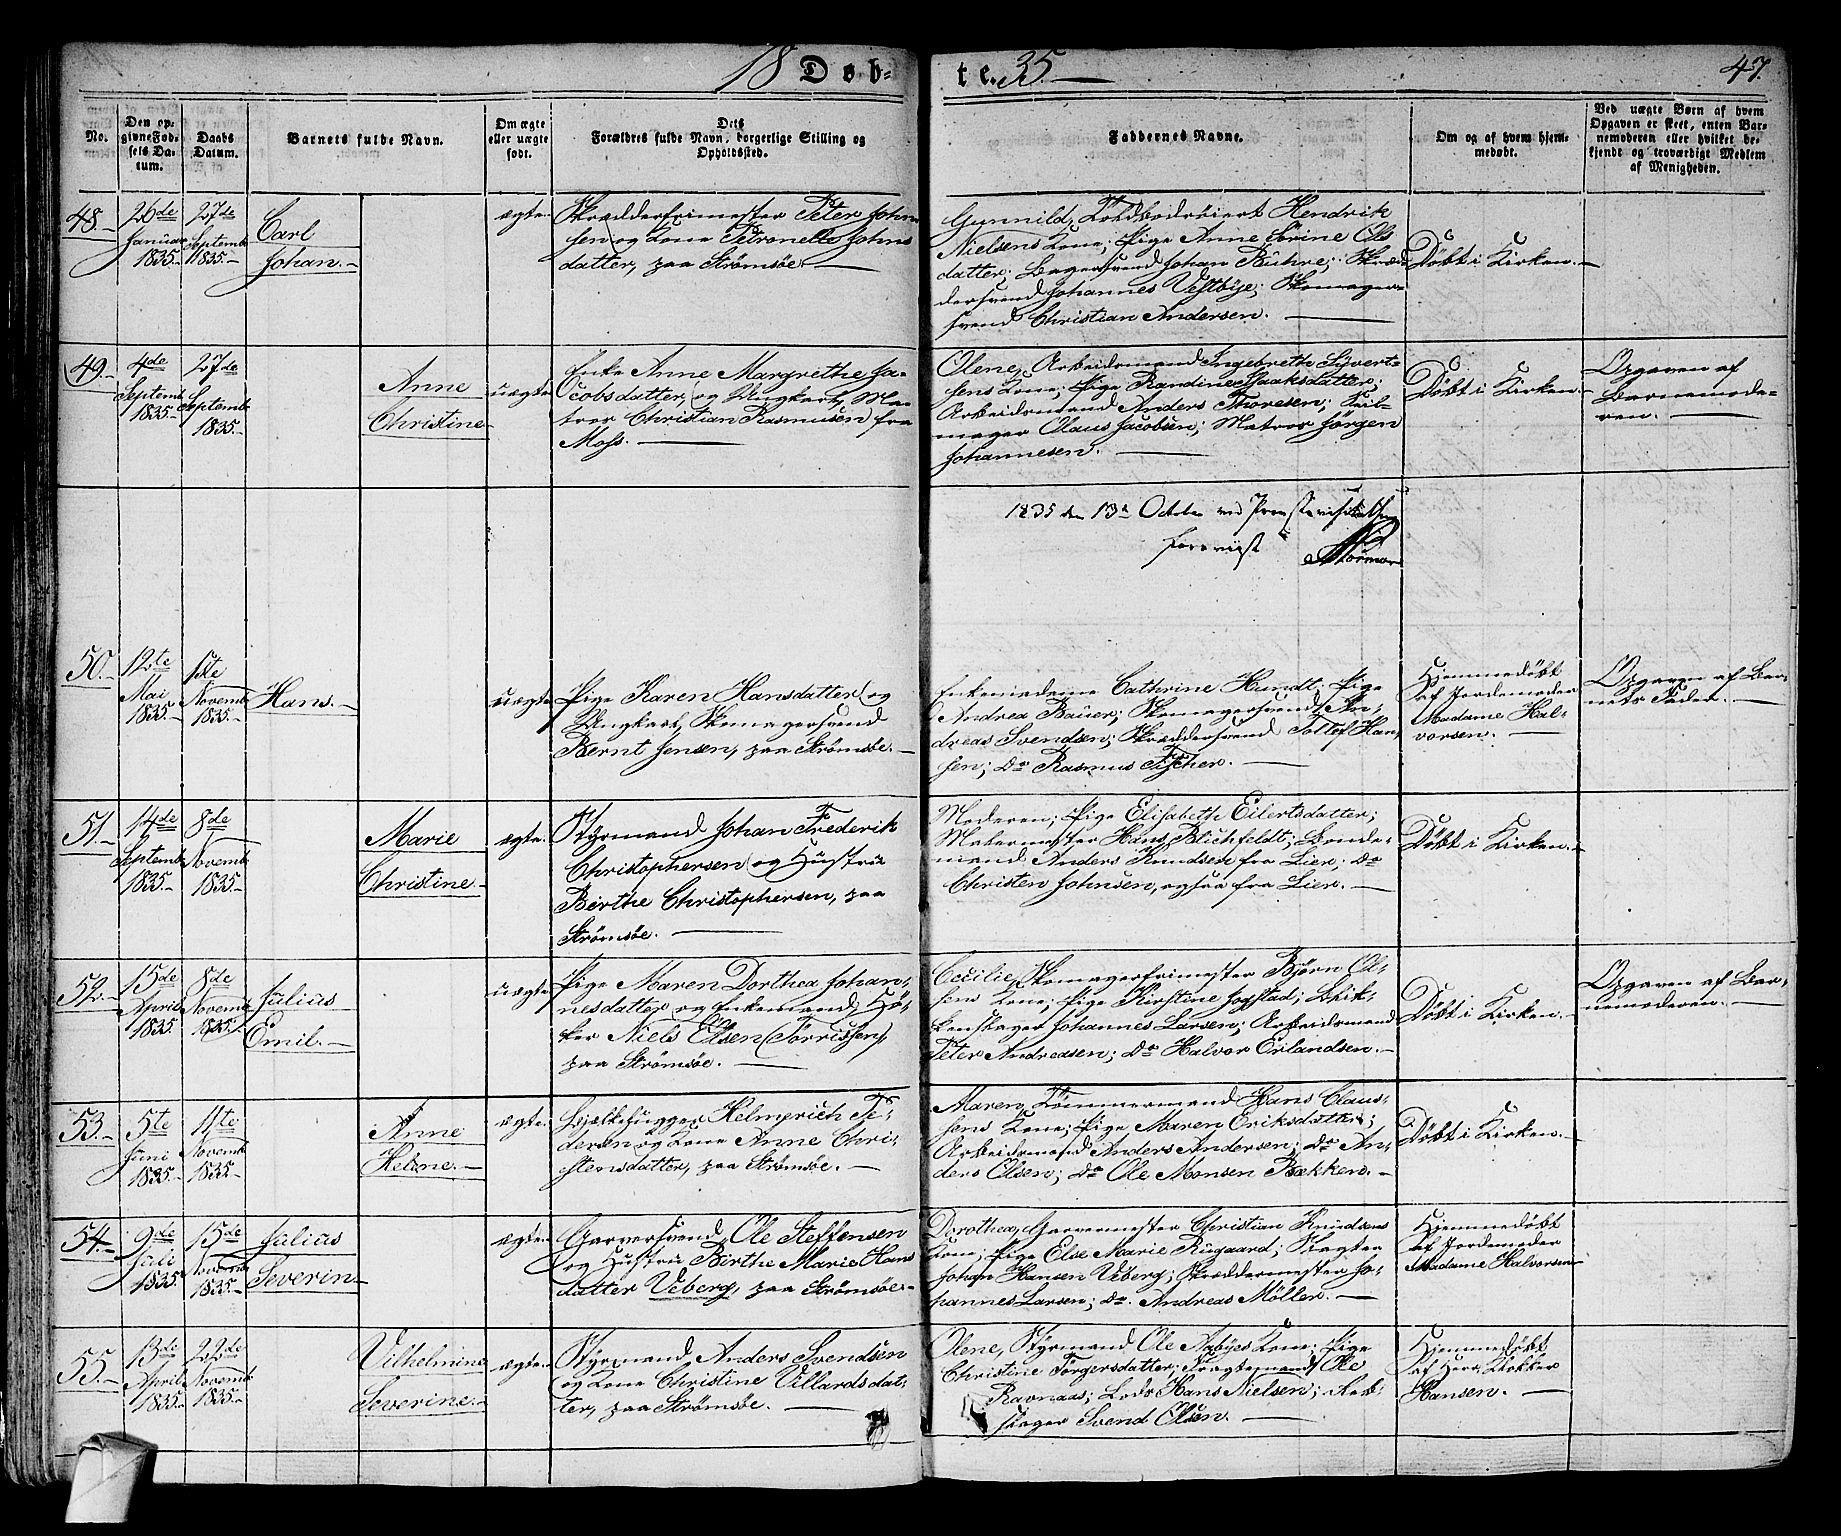 18 Døb-
te. 35.
47.
No.
Den op-
givne Fød-
sels Da-
tum.
Daabs
Datum.
Barnets fulde Navn.
Om ægte
eller uægte
født.
Dets
Forældres fulde Navn, borgerlige Stilling og
Opholdssted.
Faddernes Navne.
Om og af hvem hjem-
medøbt.
Ved uægte Børn af hvem
Opgaven er skeet, enten Bar-
nemoderen eller hvilket be-
kjendt og troværdigt Medlem
af Menigheden.
48.
26de
Januar
1835.
27de
Septemb
1835.
Carl
Johan.
ægte
Skrædderfrimester Peter John-
sen og Kone Petronelle Johns
datter, paa Strømsøe.
Gunnild, Hendrik
Nielsens Kone; Pige Anne Sørine Ols
datter; Bagersvend Johan Bühre; Skræd-
dersvend Johannes Vestbye; Skomager-
svend Christian Andersen.
Døbt i Kirken.
49.
4de
Septemb
1835.
27de
Septemb
1835.
Anne
Christine
uægte
Enke Anne Margrethe Ja-
cobsdatter og Ungkarl, Ma-
tros Christian Rasmusen fra
Moss.
Olene, Arbeidsmand Ingebreth Syvert-
sens Kone; Pige Randine Isaaksdatter;
Arbeidsmand Anders Thoresen; Seil-
mager Olaus Jacobsen; Matros Jørgen
Johannesen.
Døbt i Kirken
Opgaven af
Barnemode-
ren.
1835 den 13d October ved Provstevisitatsen
foreviist
50.
12te
Mai
1835.
1ste
Novemb
1835.
Hans.
uægte
Pige Karen Hansdatter og
Ungkarl, Skomagersvend
Bernt Jensen, paa Strømsøe.
Enkemadame Cathrine Hundt; Pige
Andrea Bauer; Skomagersvend An-
dreas Svendsen; Skræddersvend Tollef Han-
sen; Do Rasmus Fischer.
Hjemmedøbt
af Jordemoder
Madame Hal-
vorsen.
Opgaven af Bar-
nets Fader.
51.
14de
Septemb
1835.
8de
Novemb
1835.
Marie
Christine.
ægte.
Styrmand Johan Frederik
Christophersen og Hustru
Birthe Christophersen, paa
Strømsøe.
Moderen; Pige Elisabeth Eilertsdatter;
Malermester Hans Blichfeldt; Bonde-
mand Anders Knudsen fra Lier; Do
Christen Johnsen, ogsaa fra Lier.
Døbt i Kirken.
52.
15de
April
1835
8de
Novemb
1835.
Julius
Emil.
uægte
Pige Maren Dorthea Johan-
nesdatter og Enkemand, Hø-
ker Niels Olsen (Tørrissen)
paa Strømsøe.
Cecilie, Skomagerfrimester Bjørn Ol-
sens Kone; Pige Kirstine Jogstad; Blik-
kenslager Johannes Larsen; Arbeidsmand
Peter Andreasen; Do Halvor Erlandsen.
Døbt i Kirken.
Opgaven af Bar-
nemoderen.
53.
5te
Juni
1835.
11te
Novemb
1835.
Anne
Helene.
ægte.
Bjelkehugger Helmerich Pe-
dersen og Kone Anne Chri-
stensdatter, paa Strømsøe.
Maren, Tømmermand Hans Claus-
sens Kone; Pige Maren Eriksdatter;
Arbeidsmand Anders Andersen; Do An-
ders Olsen; Do Ole Monsen Bækken.
Døbt i Kirken.
54.
9de
Juli
1835.
15de
Novemb
1835.
Julius
Severin.
ægte.
Garversvend Ole Steffensen
og Hustru Birthe Marie Hans
datter Veberg, paa Strømsøe.
Dorothea, Garvermester Christian Knudsens
Kone; Pige Else Marie Rugaard; Vægter
Johan Hansen Veberg; Skræddermester Jo-
hannes Larsen; Do. Andreas Möller.
Hjemmedøbt
af Jordemoder
Madame Halvorsen
55.
13de
April
1835.
22de
Novemb
1835.
Vilhelmine
Severine.
ægte.
Styrmand Anders Svendsen
og Kone Christine Villardsdat-
ter, paa Strømsøe.
Olene, Styrmand Ole Aabyes Kone; Pige
Christine Jørgersdatter; Fragtemand Ole
Ravnaas; Lods Hans Nielsen; Reb-
slager Svend Olsen.
Hjemmedøbt
af Herr Klokker
Hansen.